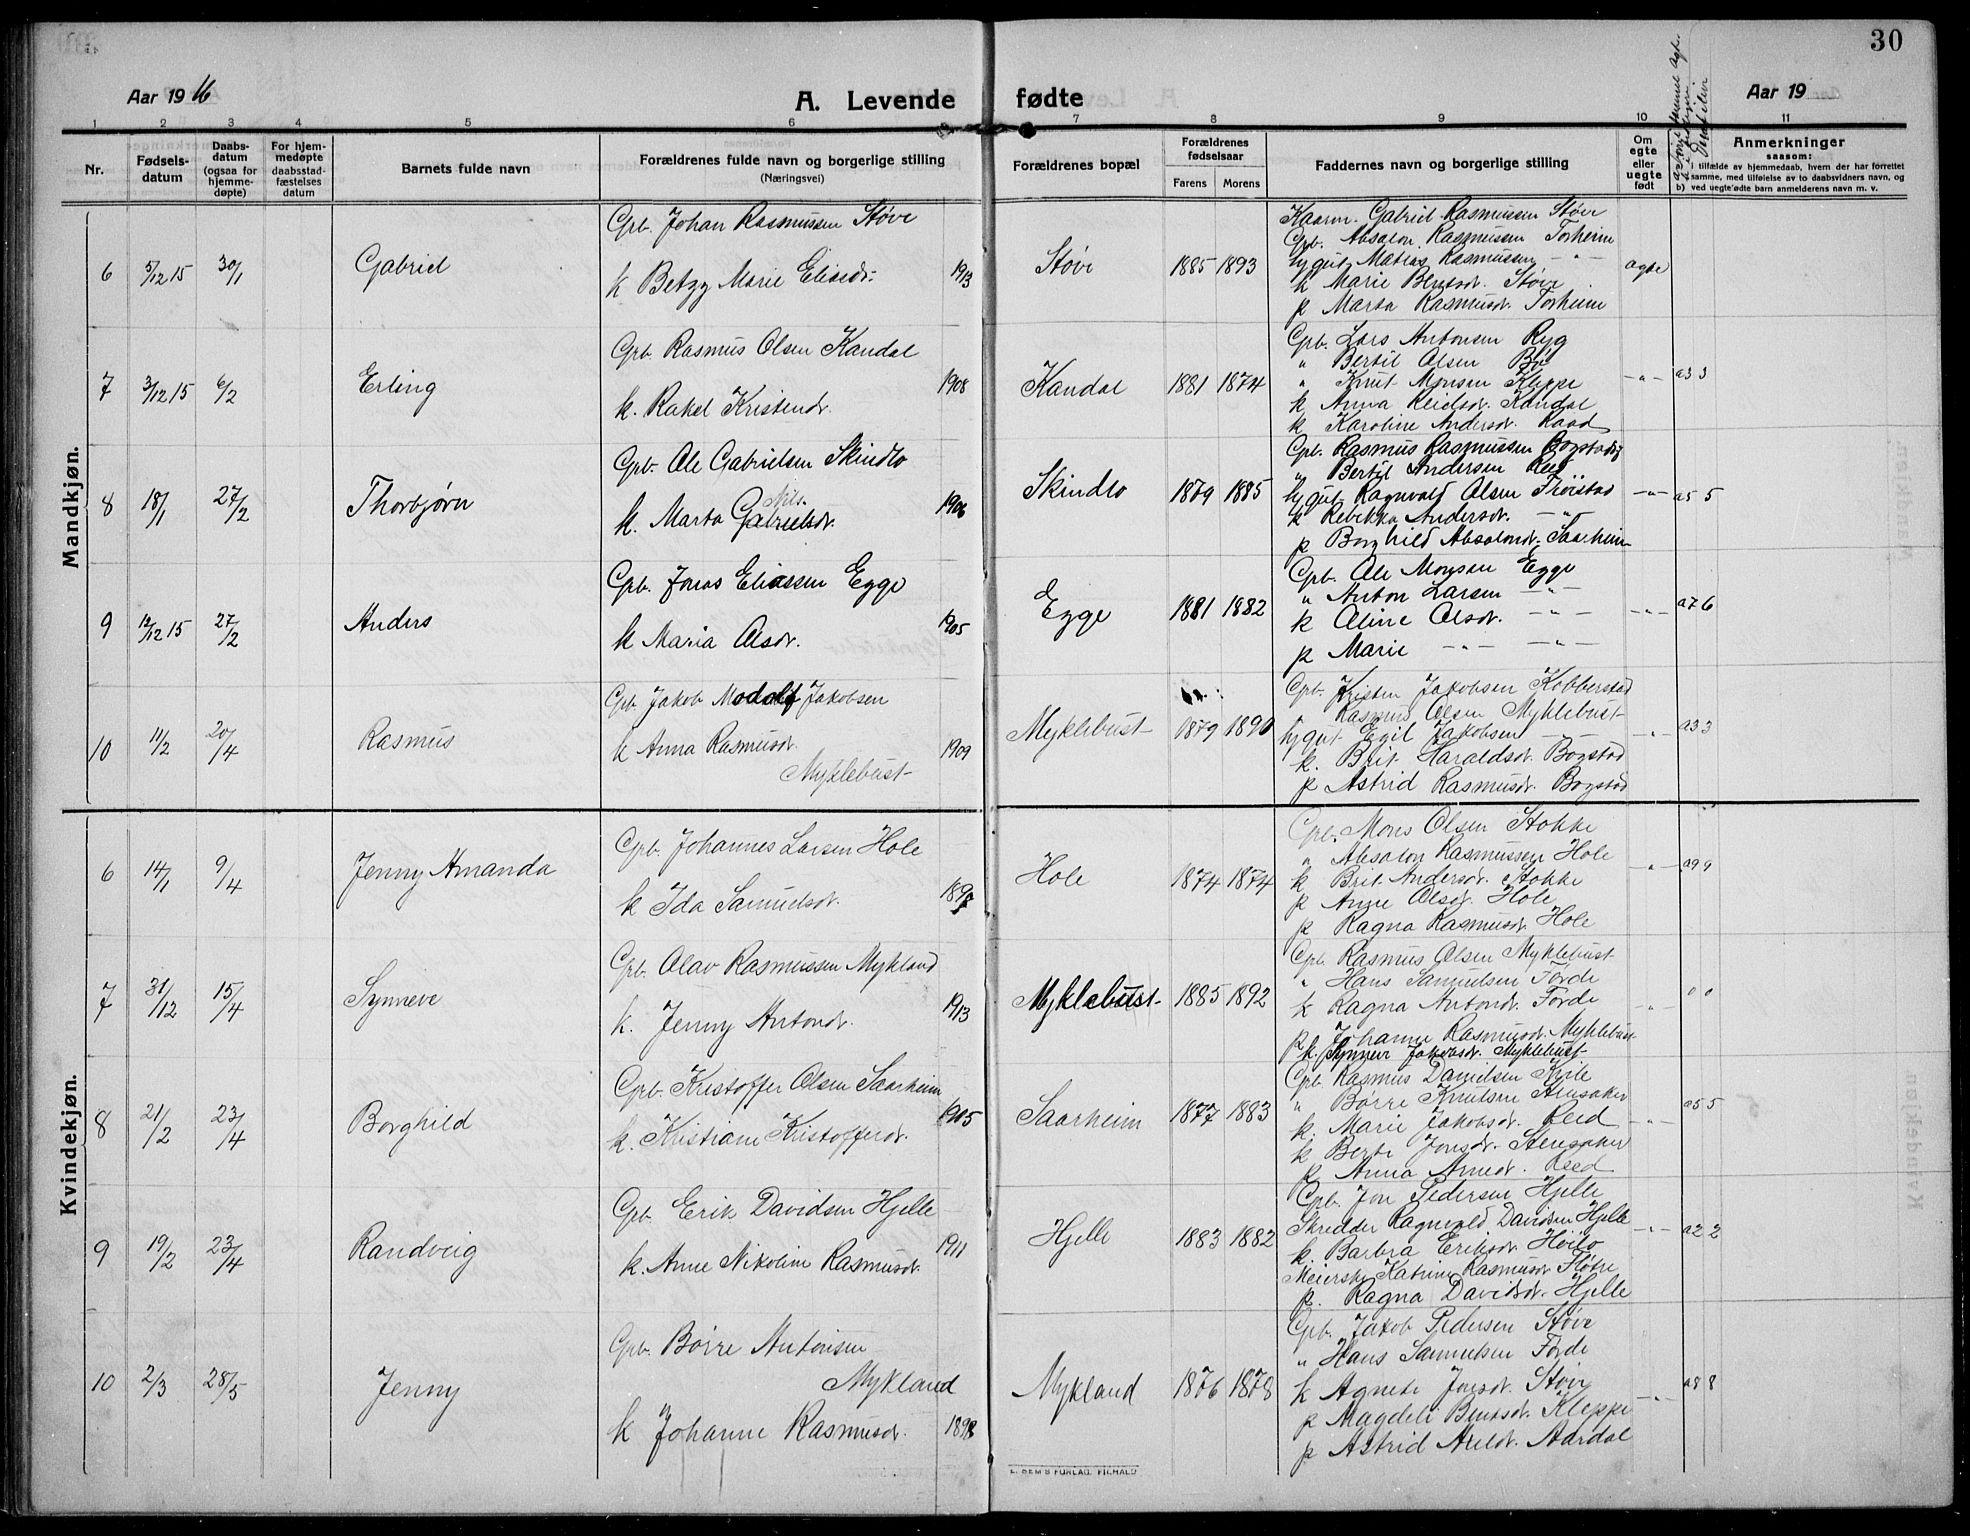 30
Aar 19 16
A. Levende fødte
Aar 19
1 2 3 4 5 6 7 8 9 10 11
Nr.
Fødsels-
datum
Daabs-
datum
(ogsaa for
hjemme-
døpte)
For hjem-
medøpte
daabsstad-
fæstelses
datum
Barnets fulde navn
Forældrenes fulde navn og borgerlige stilling
(Næringsvei)
Forældrenes bopæl
Forældrenes
fødselsaar
Farens Morens
Faddernes navn og borgerlige stilling
Om
egte
eller
uegte
født
Anmerkninger
saasom:
i tilfælde av hjemmedaab, hvem der har forrettet
samme, med tilføielse av to daabsvidners navn, og
b) ved uegte fødte barn anmelderens navn m. v.
Mandkjøn.
6 5/12 15 30/1 Gabriel
Grb. Johan Rasmussen Støve
k Betzy Marie Eliasdr. 1913
Støve 1885 1893
Kaarm. Gabriel Rasmussen Støve
Grb. Absalon Rasmussen Forheim
Ugift Matias Rasmussen -"-
k Marie Bentsdr. Støve
p Marta Rasmusdr. Forheim
ægte
7 3/12 15 6/2 Erling
Grb. Rasmus Olsen Kandal
k. Rakel Kristendr. 1908
Kandal 1881 1874
Grb. Lars Antonsen Ryg
" Bertil Olsen Bøe
" Knut Monsen Kleppe
k Anna Reidsdr. Kandal
k Karoline Andersdr. Raad
-"- a3 3
8 18/1 27/2 Thorbjørn
Grb. Ole Gabrielsen Skindlo
Nils.
k. Marta Gabrielsdr. 1906
Skindlo 1879 1885
Grb. Rasmus Rasmussen Bogstad
" Bertil Andersen Reed
Ugift Ragnvald Olsen Frøistad
k Rebekka Andersdr. -"-
p Borghild Absalondr. Saarheim
-"- a5 5
9 12/12 15 27/2 Anders
Grb. Jonas Eliassen Egge
k Maria Olsdr. 1905
Egge 1881 1882
Grb. Ole Monsen Egge
" Anton Larsen -"-
k Oline Olsdr. -"-
p Marie -"- -"-
-"- a7 6
10 11/2 20/4 Rasmus
Grb. Jakob Modolf Jakobsen
k Anna Rasmusdr. 1909
Myklebust
Myklebust 1879 1890
Grb. Kristen Jakobsen Kobberstad
" Rasmus Olsen Myklebust
Ugift Egil Jakobsen -"-
k. Brit Haraldsdr. Bogstad
p Astrid Rasmusdr. Bogstad
" a3 3
Kvindekjøn.
6 14/1 9/4 Jenny Amanda
Grb. Johannes Larsen Hole
k Ida Samuelsdr. 1897
Hole 1874 1874
Grb. Mons Olsen Stokke
" Absalon Rasmussen Hole
k Brit Andersdr. Stokke
p Anne Olsdr. Hole
p Ragna Rasmusdr. Hole
-"- a9 9
7 31/12 15/4 Synneve
Grb. Olav Rasmussen Mykland
k. Jenny Antondr. 1913
Myklebust 1885 1892
Grb. Rasmus Olsen Myklebust
" Hans Samuelsen Førde
k Ragna Antondr. Førde
p Johanne Rasmusdr. Myklebust
k. Synnev Jakobsdr. Myklebust
-"- 0 0
8 21/2 23/4 Borghild
Grb. Kristoffer Olsen Saarheim
k. Kristiane Kristofferdr. 1905
Saarheim 1877 1883
Grb. Rasmus Danielsen Hole
" Børre Knutsen Stensaker
k. Marie Jakobsdr. Reed
k Berte Jonsdr. Stensaker
p Anna Arnedr. Reed
-"- a5 5
9 19/2 23/4 Randveig
Grb. Erik Davidsen Hjelle
k. Anne Nikoline Rasmusdr. 1911
Hjelle 1883 1882
Grb. Jon Pedersen Hjelle
Skredder Ragnvald Davidsen Hjelle
k. Barbra Eriksdr. Høilo
Meierske Katrine Rasmusdr. Støve
p. Ragna Davidsdr. Hjelle
-"- a2 2
10 2/3 28/5 Jenny
Grb. Børre Antonsen
Mykland
k Johanne Rasmusdr. 1898
Mykland 1876 1878
Grb. Jakob Pedersen Støve
" Hans Samuelsen Førde
k Agnete Jonsdr. Støve
p Magdeli Bentsdr. Kleppe
p Astrid Axeldr. Aardal
-"- a8 8